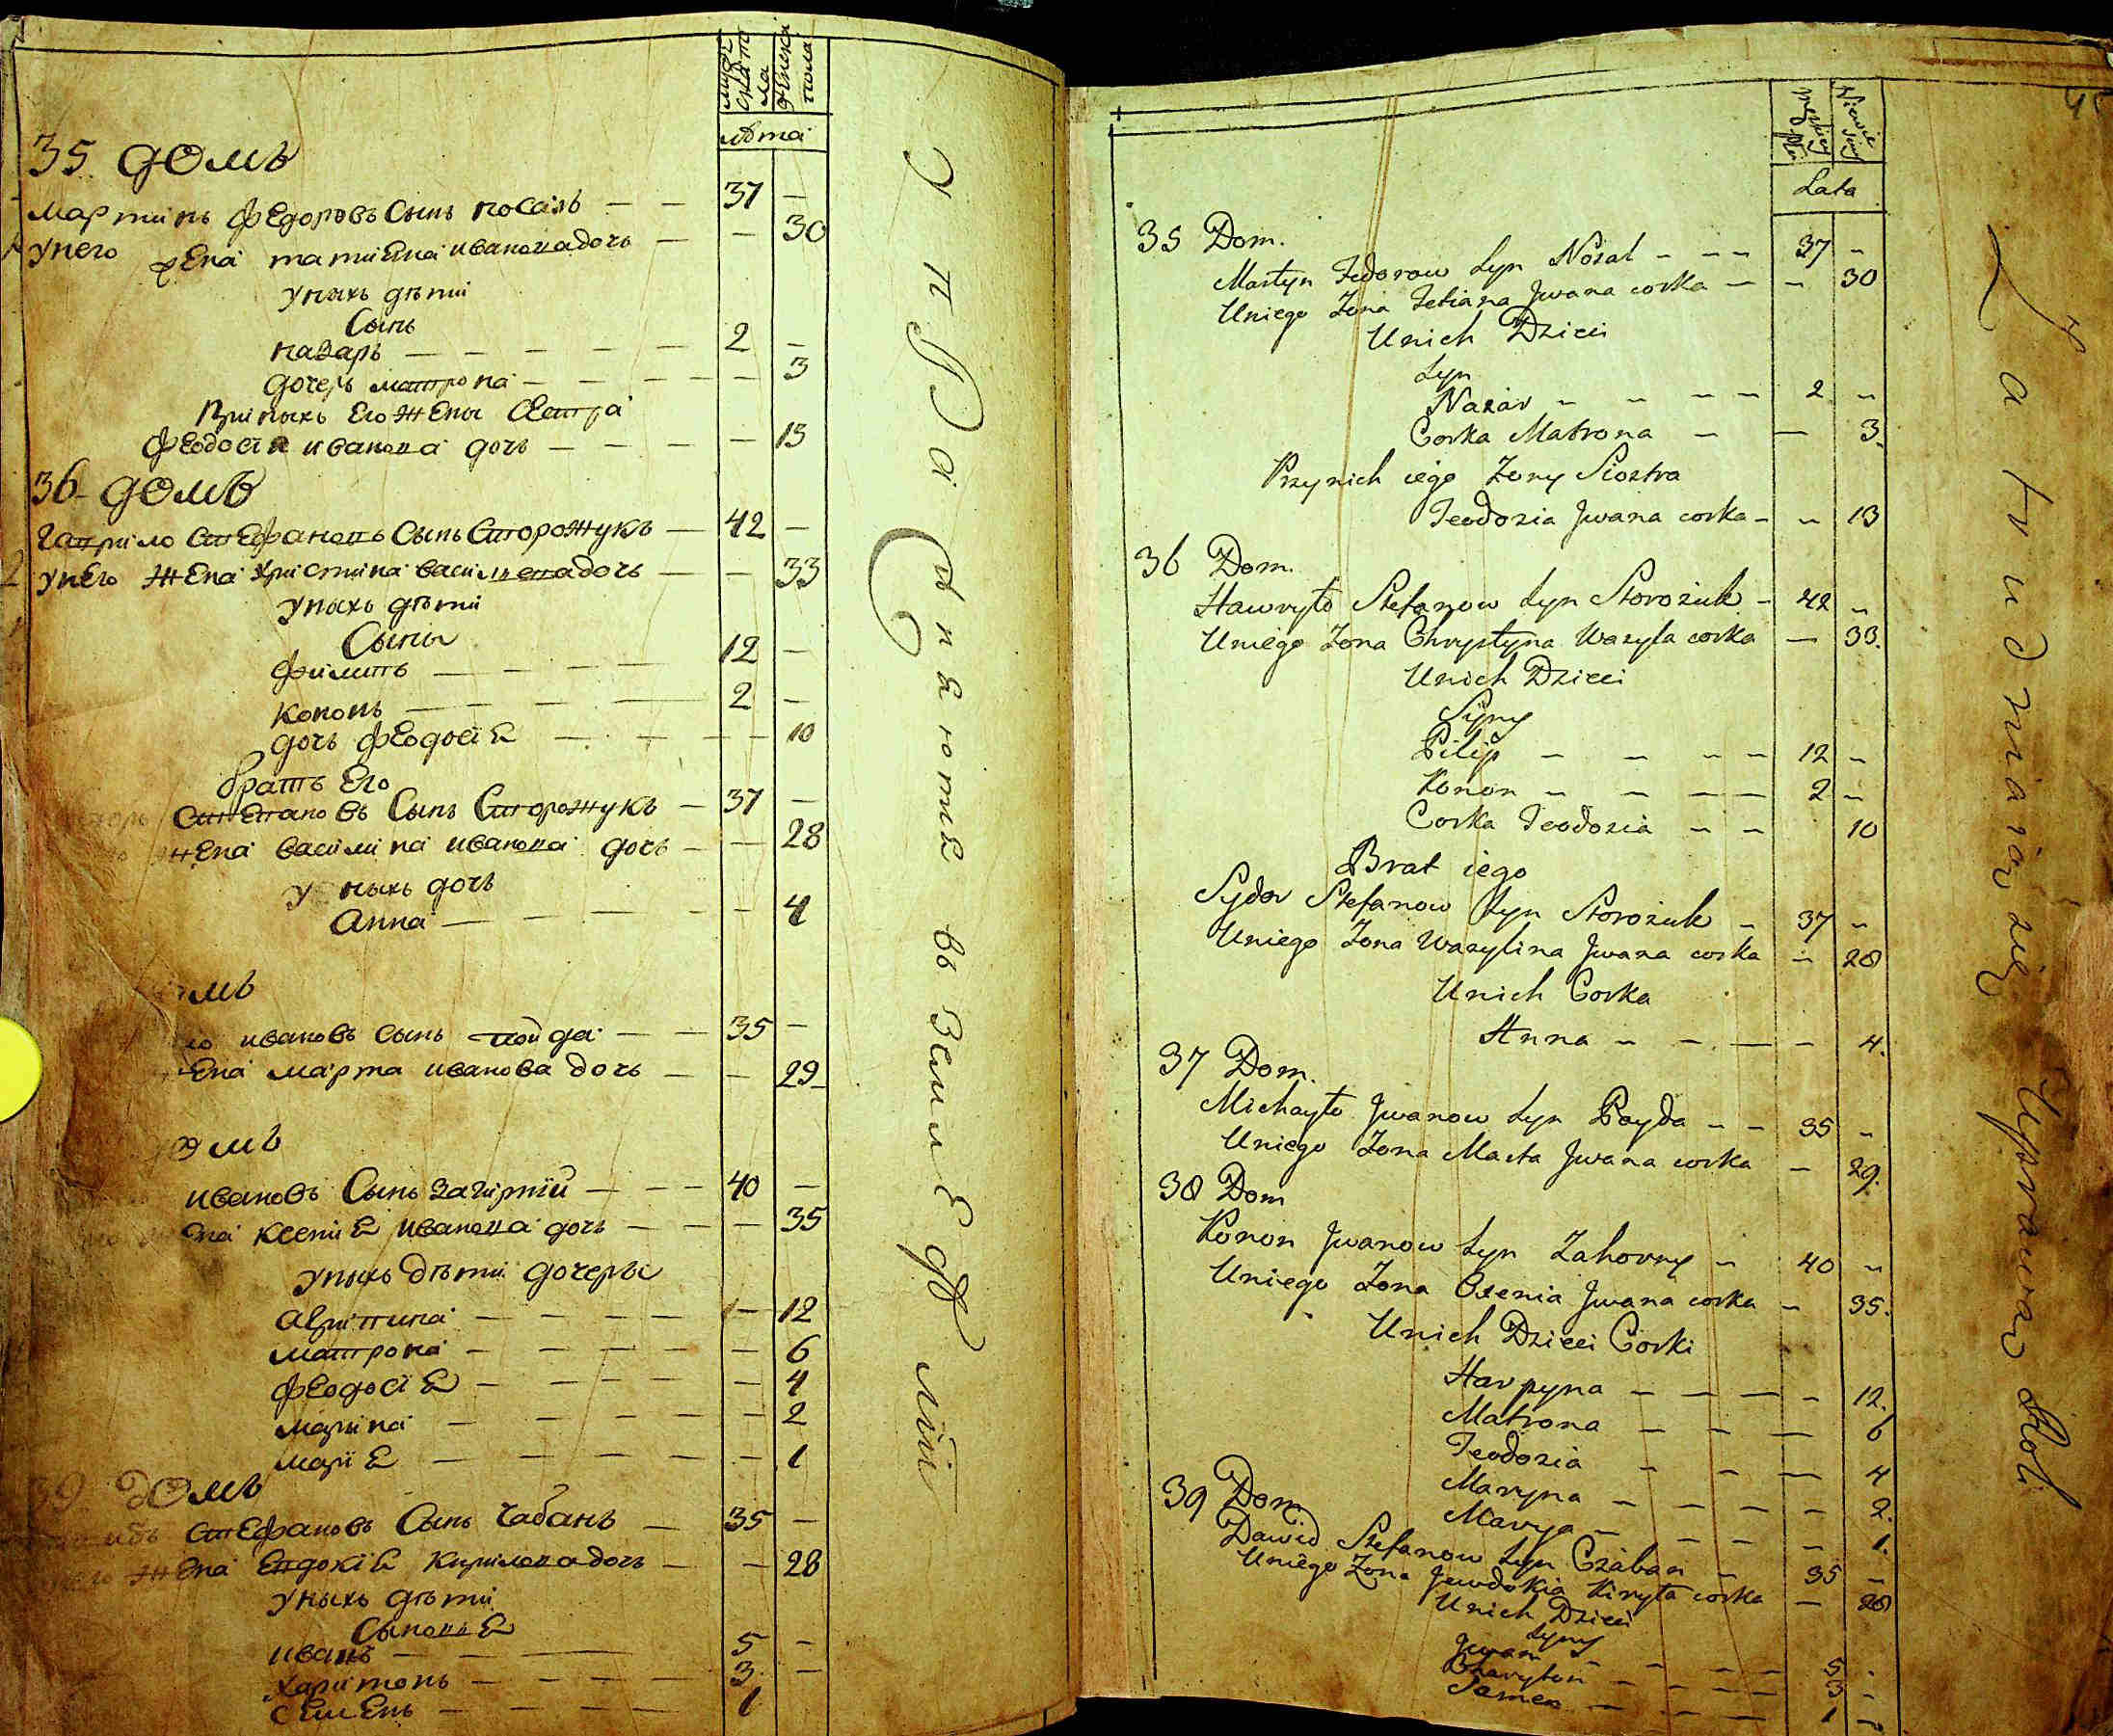 мужеска пола
женска пола
лѣта
35 домъ
мартинъ федоровъ сынъ носаль — — 37 —
унего жена татиена иванова дочь — — 30
унихъ дѣти
сынъ
назаръ — — — — — 2 —
дочеръ матрона — — — — — 3
при нихъ его жены сестра
феодосия иванова дочь — — — — 13
36 домъ
гаврило стефановъ сынъ сторожукъ — 42 —
унего жена христина василева дочь — — 33
унихъ дѣти
сыны
филипъ — — — — 12 —
кононъ — — — — 2 —
дочь феодосіе — — — — 10
братъ его
степановъ сынъ сторожукъ — 37 —
жена василина иванова дочь — — 28
у нихъ дочь
анна — — — — — 4
мъ
ло ивановъ сынъ пойда — — 35 —
жена марта иванова дочь — — 29
омъ
ивановъ сынъ загирній — — — 40 —
жена ксение иванова дочь — — — 35
унихъ дѣти дочеры
агрипина — — — — — 12
матрона — — — — — 6
феодосіе — — — — — 4
марина — — — — — 2
маріе — — — — — 1
39 домъ
стефановъ сынъ чабанъ — 35 —
унего жена евдокіе кирилова дочь — — 28
унихъ дѣти
сынове
иванъ — — — 5 —
харитонъ — — — — 3 —
семенъ — — — — 1
упражняются въ земледѣлии
Lata
35 Dom.
Martyn Fedorow Syn Nosal - - - 37 -
Uniego Zona Tetiana Jwana corka - - 30
Unich Dzieci
Syn
Nazar - - - - 2 -
Corka Matrona - — 3.
Przynich iego Zony Siostra
Teodozia Jwana corka - - 13
36 Dom.
Hawryło Stefanow Syn Storożuk - 42 -
Uniego Zona Chrystyna Wasyla corka — 33.
Unich Dzieci
Syny
Pilip - - - - 12 -
Konon - - - — 2 -
Corka Teodozia - - 10
Brat iego
Sydor Stefanow Syn Storozuk - 37 -
Uniego Zona Wasylina Jwana corka - 28
Unich Corka
Anna - - - - 4.
37 Dom.
Michayło Jwanow Syn Poyda - - 35 -
Uniego Zona Marta Jwana corka - 29.
38 Dom
Konon Jwanow Syn Zahorny - 40 -
Uniego Zona Oxenia Jwana corka - 35.
Unich Dzieci Corki
Harpyna - - — - 12.
Matrona - - — 6
Teodozia - - — 4
Maryna - - - - - 2.
Marya - - - - 1.
39 Dom
Dawid Stefanow Syn Czaban - 35 -
Uniego Zona Jewdokia Kiryła corka — 28
Unich Dzieci
Syny
Jwan - - - - 5 -
Charyton - - - - 3 -
Semen - - - - 1 -
Zatrudniaią się Uprawą Roli